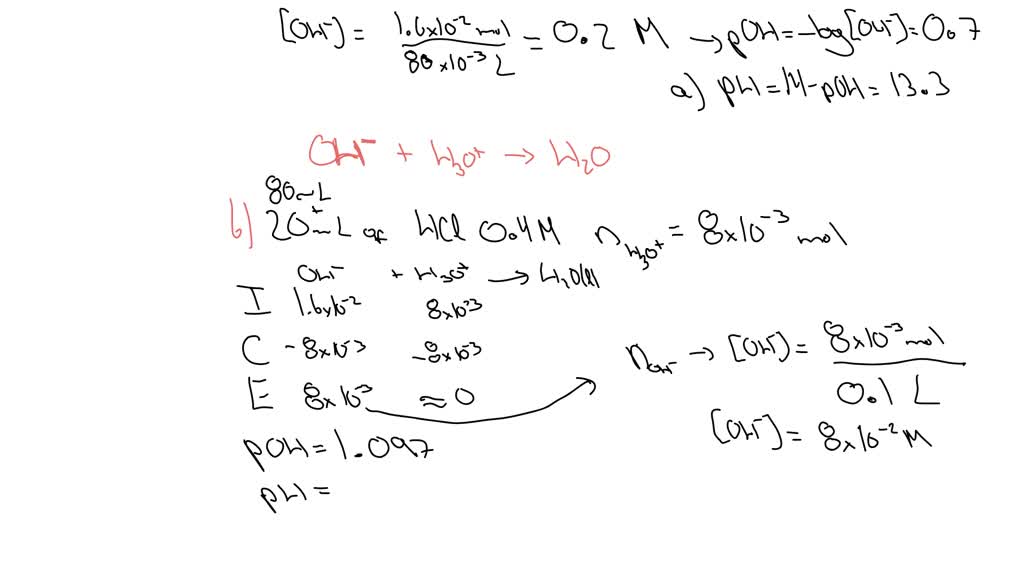 [OH⁻] = 1.6x10⁻² mol / 80x10⁻³ L = 0.2 M → pOH = -log[OH⁻] = 0.7
a) pH = 14 - pOH = 13.3
OH⁻ + H₃O⁺ → H₂O
80 mL
+
b) 20 mL of HCl 0.4 M n H₃O⁺ = 8x10⁻³ mol
OH⁻ + H₃O⁺ → H₂O(l)
I 1.6x10⁻² 8x10⁻³
C -8x10⁻³ -8x10⁻³
E 8x10⁻³ ≈ 0
n OH⁻ → [OH⁻] = 8x10⁻³ mol / 0.1 L
[OH⁻] = 8x10⁻² M
pOH = 1.097
pH =